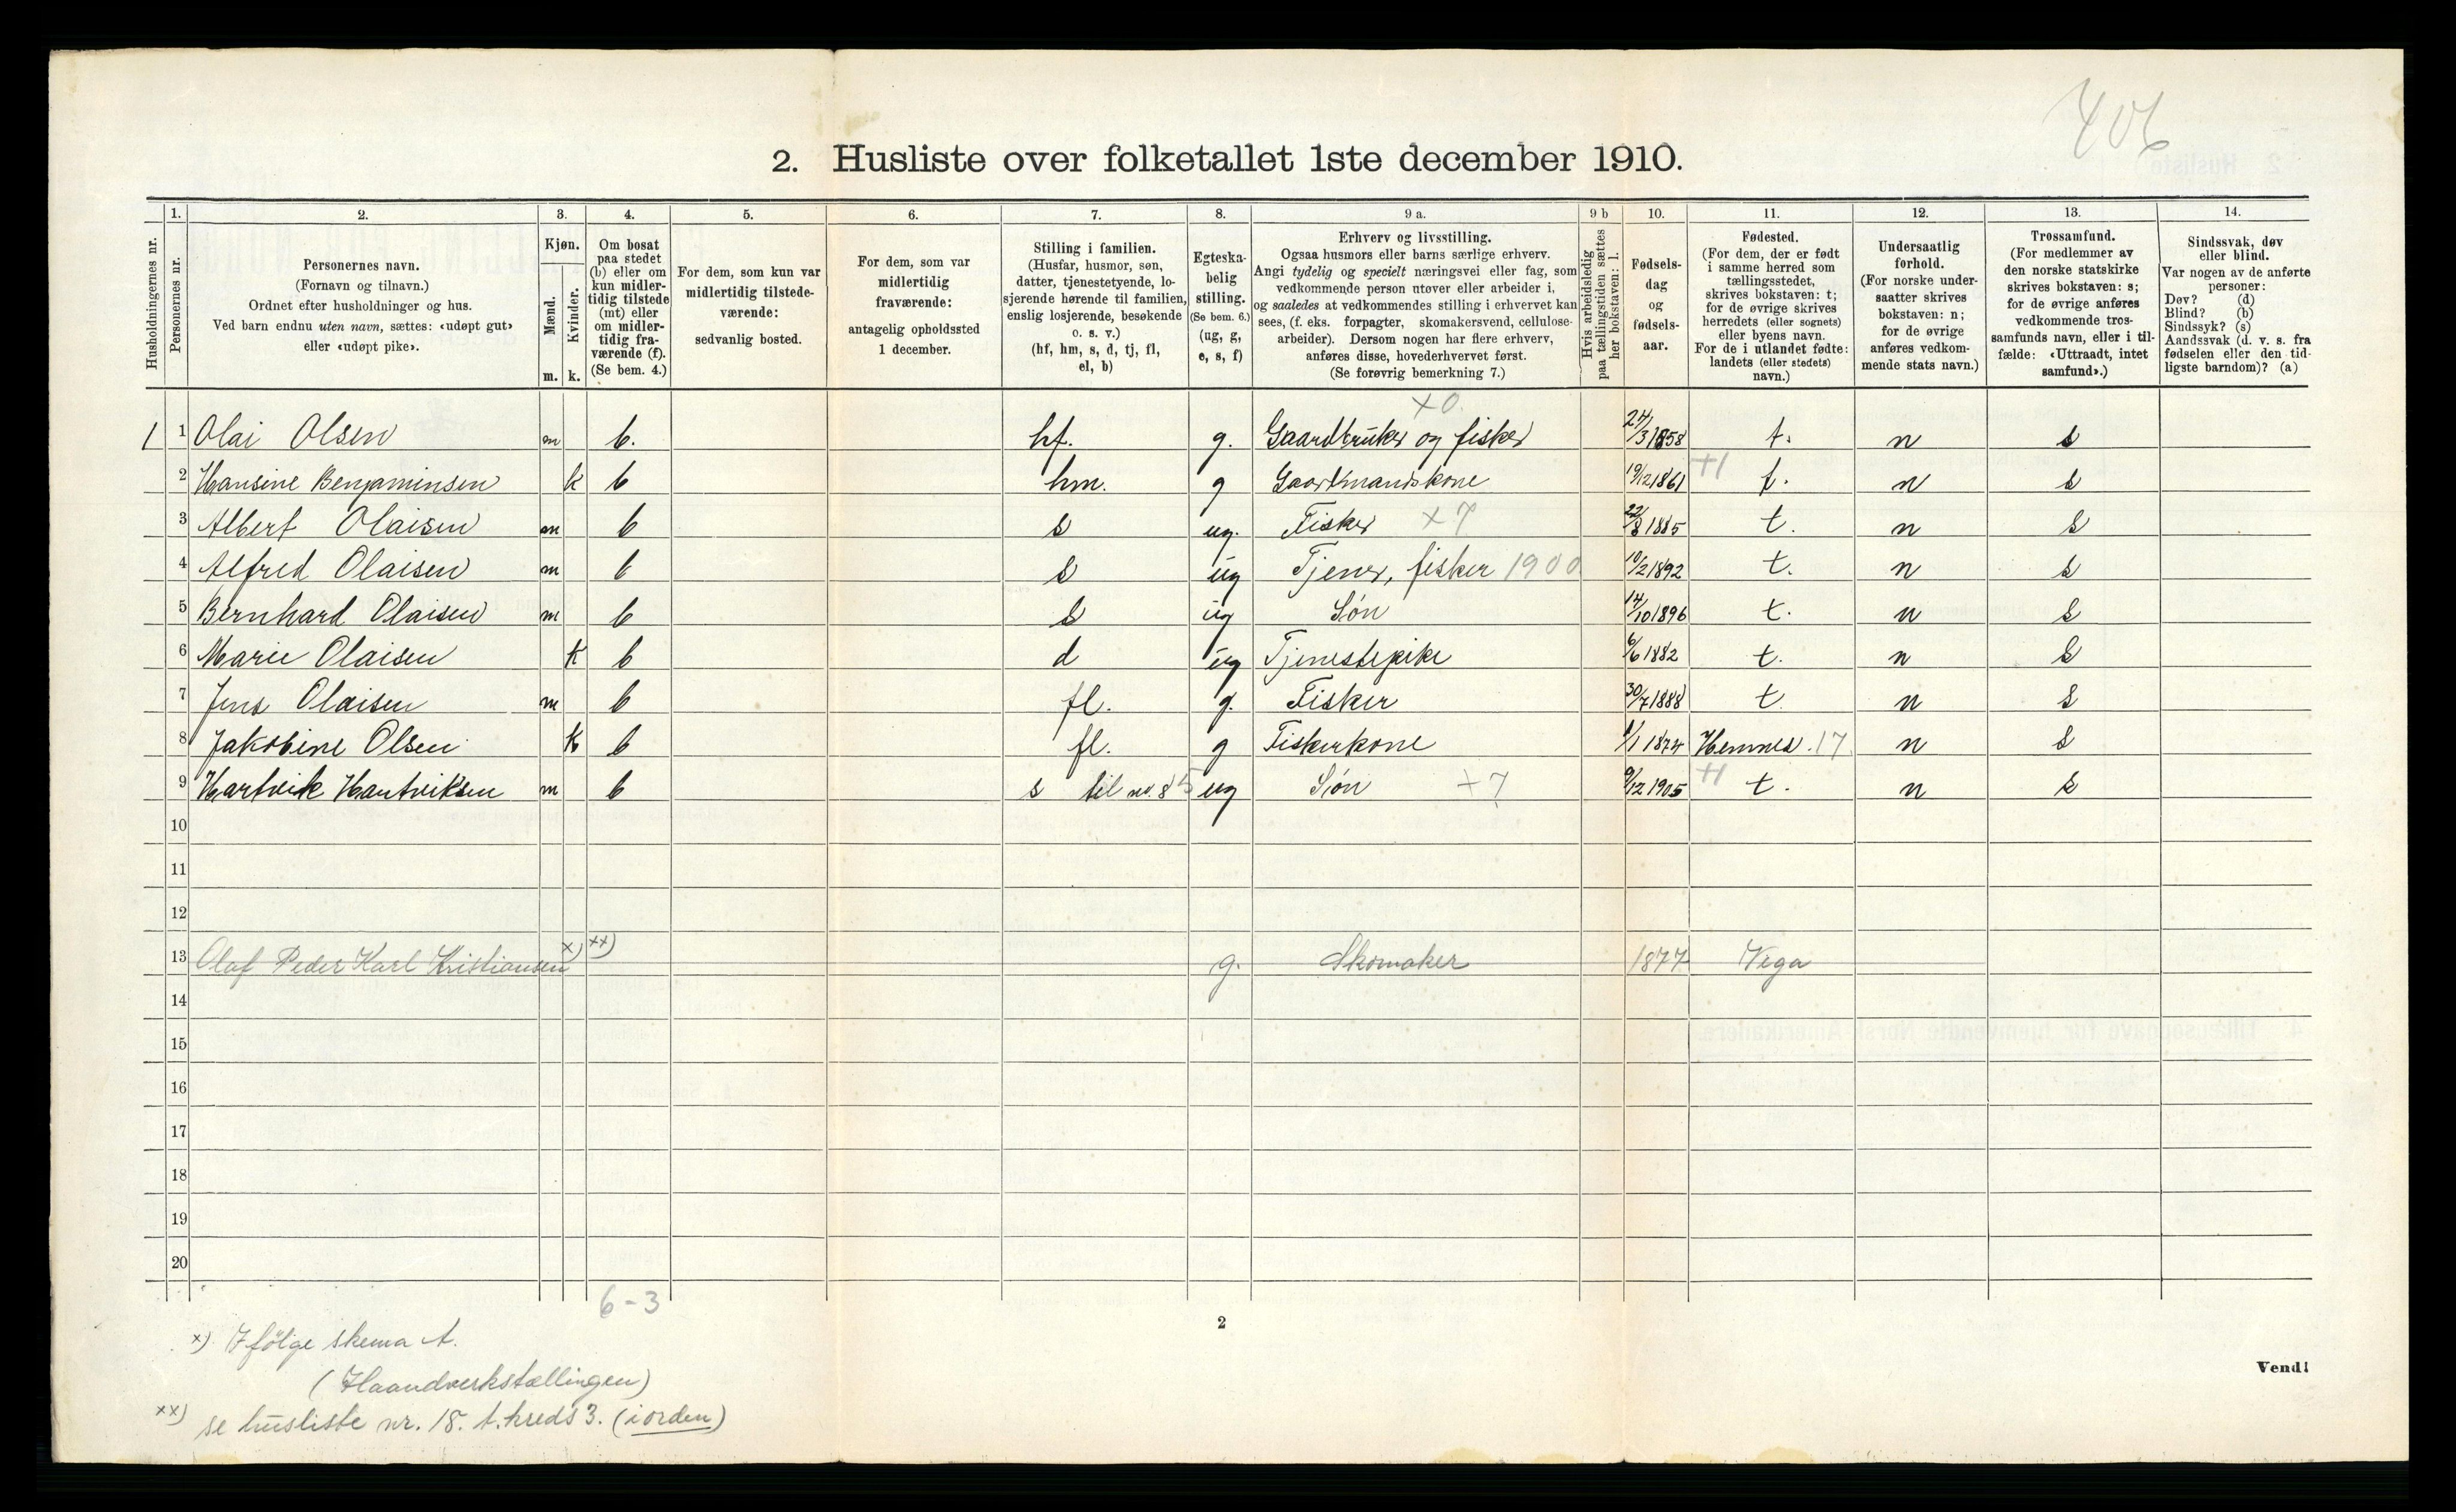 406
2. Husliste over folketallet 1ste december 1910.
Husholdningernes nr.
1.
Personernes nr.
2.
Personernes navn.
(Fornavn og tilnavn.)
Ordnet efter husholdninger og hus.
Ved barn endnu uten navn, sættes: «udøpt gut»
eller «udøpt pike».
3.
Kjøn.
Mænd.
Kvinder.
m. k.
4.
Om bosat
paa stedet
(b) eller om
kun midler-
tidig tilstede
(mt) eller
om midler-
tidig fra-
værende (f).
(Se bem. 4.)
5.
For dem, som kun var
midlertidig tilstede-
værende:
sedvanlig bosted.
6.
For dem, som var
midlertidig
fraværende:
antagelig opholdssted
1 december.
7.
Stilling i familien.
(Husfar, husmor, søn,
datter, tjenestetyende, lo-
sjerende hørende til familien,
enslig losjerende, besøkende
o. s. v.)
(hf, hm, s, d, tj, fl,
el, b)
8.
Egteska-
belig
stilling.
(Se bem. 6.)
(ug, g,
e, s, f)
9 a.
Erhverv og livsstilling.
Ogsaa husmors eller barns særlige erhverv.
Angi tydelig og specielt næringsvei eller fag, som
vedkommende person utøver eller arbeider i,
og saaledes at vedkommendes stilling i erhvervet kan
sees, (f. eks. forpagter, skomakersvend, cellulose-
arbeider). Dersom nogen har flere erhverv,
anføres disse, hovederhvervet først.
(Se forøvrig bemerkning 7.)
9 b
Hvis arbeidsledig
paa tællingstiden sættes
her bokstaven: l.
10.
Fødsels-
dag
og
fødsels-
aar.
11.
Fødested.
(For dem, der er født
i samme herred som
tællingsstedet,
skrives bokstaven: t;
for de øvrige skrives
herredets (eller sognets)
eller byens navn.
For de i utlandet fødte:
landets (eller stedets)
navn.)
12.
Undersaatlig
forhold.
(For norske under-
saatter skrives
bokstaven: n;
for de øvrige
anføres vedkom-
mende stats navn.)
13.
Trossamfund.
(For medlemmer av
den norske statskirke
skrives bokstaven: s;
for de øvrige anføres
vedkommende tros-
samfunds navn, eller i til-
fælde: «Uttraadt, intet
samfund».)
14.
Sindssvak, døv
eller blind.
Var nogen av de anførte
personer:
Døv? (d)
Blind? (b)
Sindssyk? (s)
Aandssvak (d. v. s. fra
fødselen eller den tid-
ligste barndom)? (a)
x0.
1 1 Olai Olsen m b. hf. g. Gaardbruker og fisker 24/3 1858 t. n s
2 Hansine Benjaminsen k b hm. g Gaardmandskone 19/12 1861 +1 t. n s
3 Albert Olaisen m b s ug. Fisker x7 22/8 1885 t. n s
4 Alfred Olaisen m b s ug Tjener, fisker 1900 10/2 1892 t. n s
5 Bernhard Olaisen m b s ug Søn 14/10 1896 t. n s
6 Marie Olaisen k b d ug Tjenestepike 6/6 1882 t. n s
7 Jens Olaisen m b fl. g. Fisker 30/7 1888 t. n s
8 Jakobine Olsen k b fl. g Fiskerkone 1/1 1874 Hemnes. 17 n s
9 Hartvik Hartviksen m b s til nr. 8 5 ug Søn +7 9/12 1905 +1 t. n s
10
11
12
13 Olaf Peder Karl Kristiansen x) xx) g. Skomaker 1877 Vega
14
15
16
17
18
19
20
6-3
x) Ifølge skema A.
(Haandverkstællingen)
xx) se husliste nr. 18. t. kreds 3. (iorden)
2
Vend!